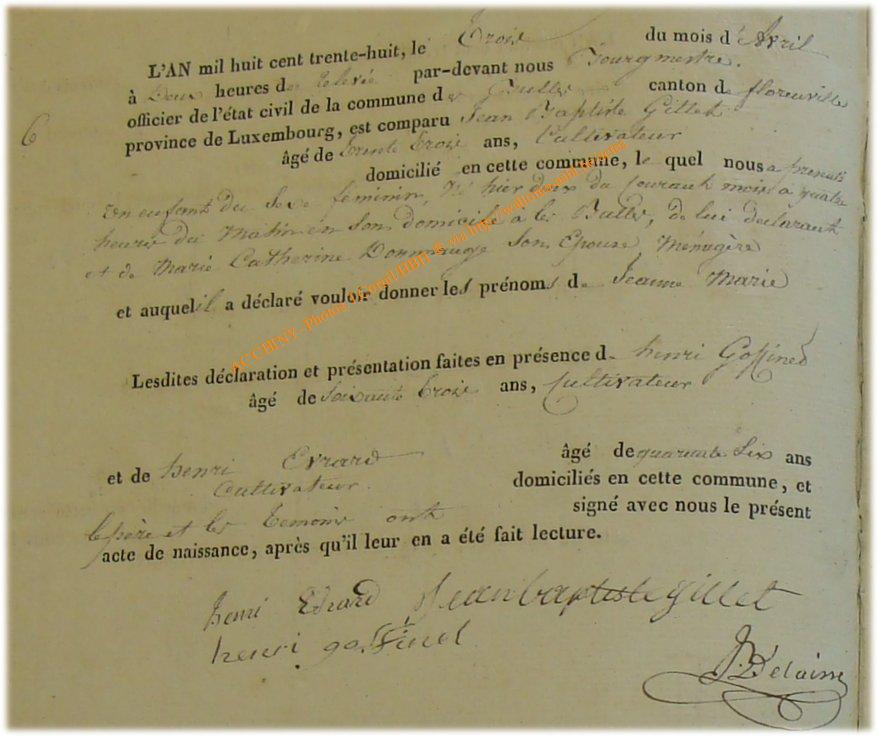 L'AN mil huit cent trente-huit, le Trois du mois d'Avril
à Deux heures de relevée par-devant nous Bourgmestre.
officier de l'état civil de la commune des Bulles canton de florenville
province de Luxembourg, est comparu Jean Baptiste Gillet
6
âgé de trente trois ans, Cultivateur
domicilié en cette commune, lequel nous a presenté
un enfant du sexe féminin, né hier deux du courant mois a quatre
heures du Matin en Son domicile à les Bulles, de lui déclarant
et de Marie Catherine Dommange Son Epouse Ménagère
et auquel il a déclaré vouloir donner les prénoms de Jeanne Marie
ACCBINV- Photos Lionel HBH © sur http://
Lesdites déclaration et présentation faites en présence de henri Goffinet
âgé de Soixante trois ans, Cultivateur
et de henri Evrard âgé de quarante Six ans
Cultivateur. domiciliés en cette commune, et
le père et les temoins ont signé avec nous le présent
acte de naissance, après qu'il leur en a été fait lecture.
henri Evrard Jean baptiste gillet
henri goffinet